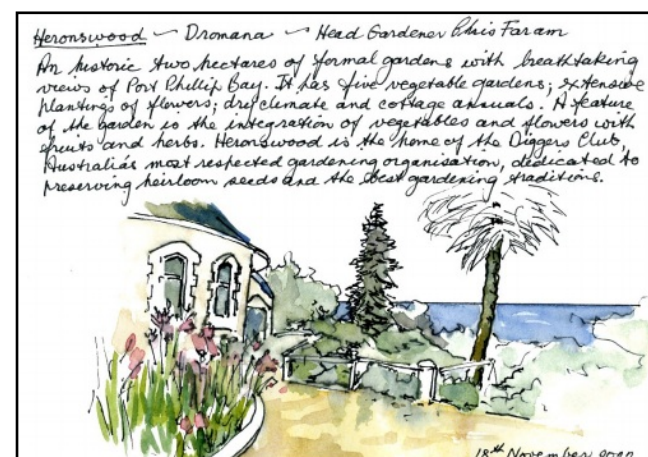 Heronswood — Dromana — Head Gardener Chris Faram
An historic two hectares of formal gardens with breathtaking
views of Port Phillip Bay. It has five vegetable gardens; extensive
plantings of flowers; dry climate and cottage annuals. A feature
of the garden is the integration of vegetables and flowers with
fruits and herbs. Heronswood is the home of the Diggers Club,
Australia's most respected gardening organisation, dedicated to
preserving heirloom seeds and the best gardening traditions.
18th November